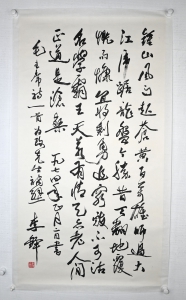 鍾山風雨起蒼黃百萬雄師過大
江虎踞龍盤今勝昔天翻地覆
慨而慷宜將剩勇追窮寇不可沽
名學霸王天若有情天亦老人间
正道是滄桑 一九七四年
毛主席詩一首 先生